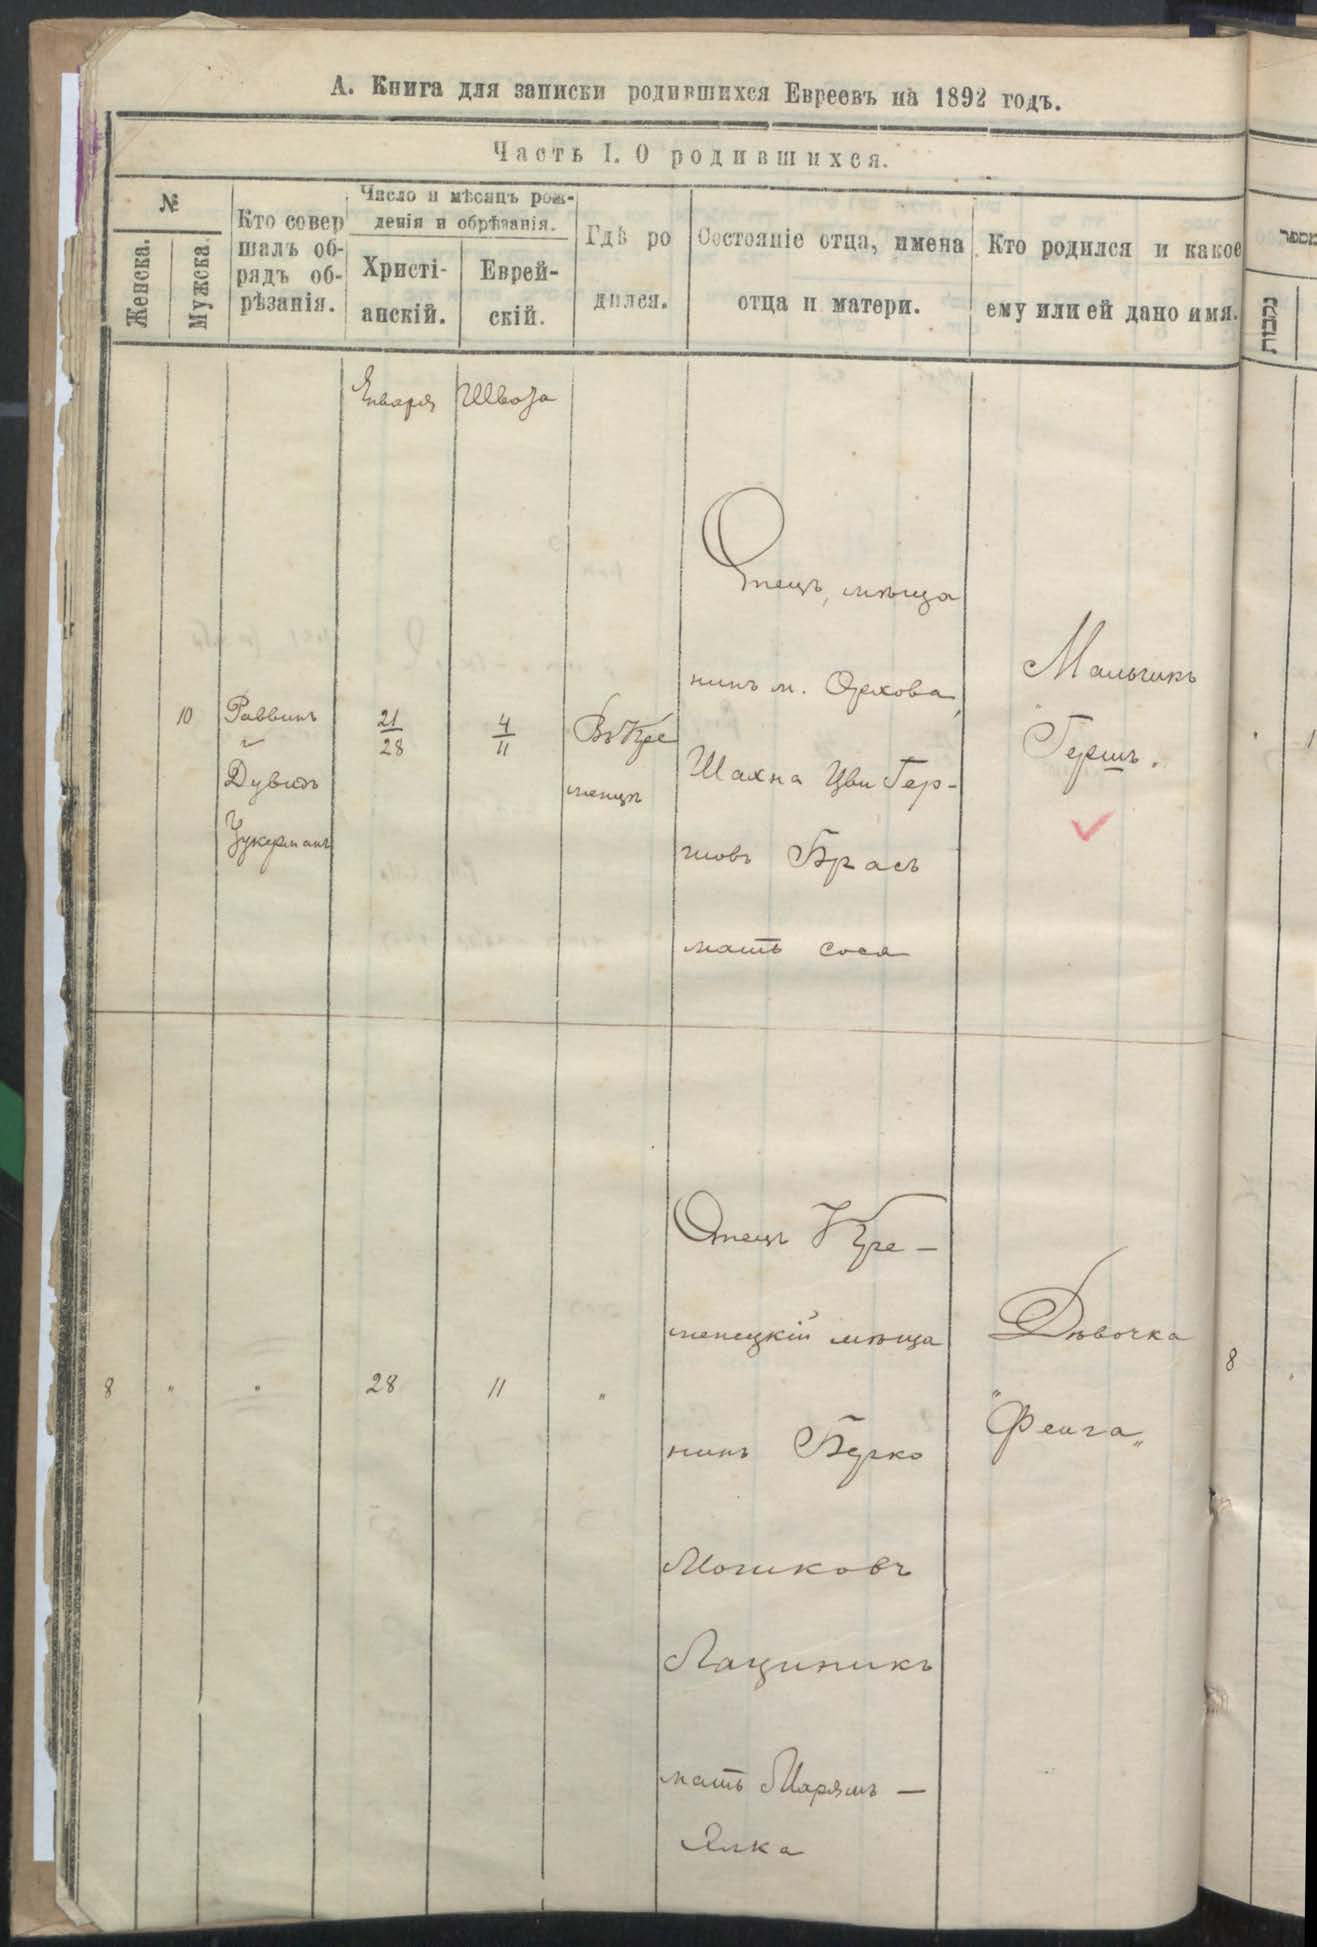 А. Книга для записки родившихся Евреевъ на 1892 годъ.
Часть I. О родившихся.
№
Женска.
Мужска.
Кто совер
шалъ об-
рядъ об-
рѣзанія.
Число и мѣсяцъ рож-
денія и обрѣзанія.
Христі-
анскій.
Еврей-
скій.
Гдѣ ро
дился.
Состояніе отца, имена
отца и матери.
Кто родился и какое
ему или ей дано имя.
Января
Швота
10
Раввинъ
Дувидъ
Цукерманъ
21
28
4
11
Въ Кре
менцѣ
Отецъ, мѣща
нинъ м. Орхова,
Шахна Цви Гер-
шовъ Брасъ
мать Сося
Мальчикъ
Гершъ.
8
"
"
28
11
"
Отецъ Кре-
менецкій мѣща
нинъ Берко
Мошковъ
мать Марямъ-
Дѣвочка
"Феига"
מספר
נקבות
8